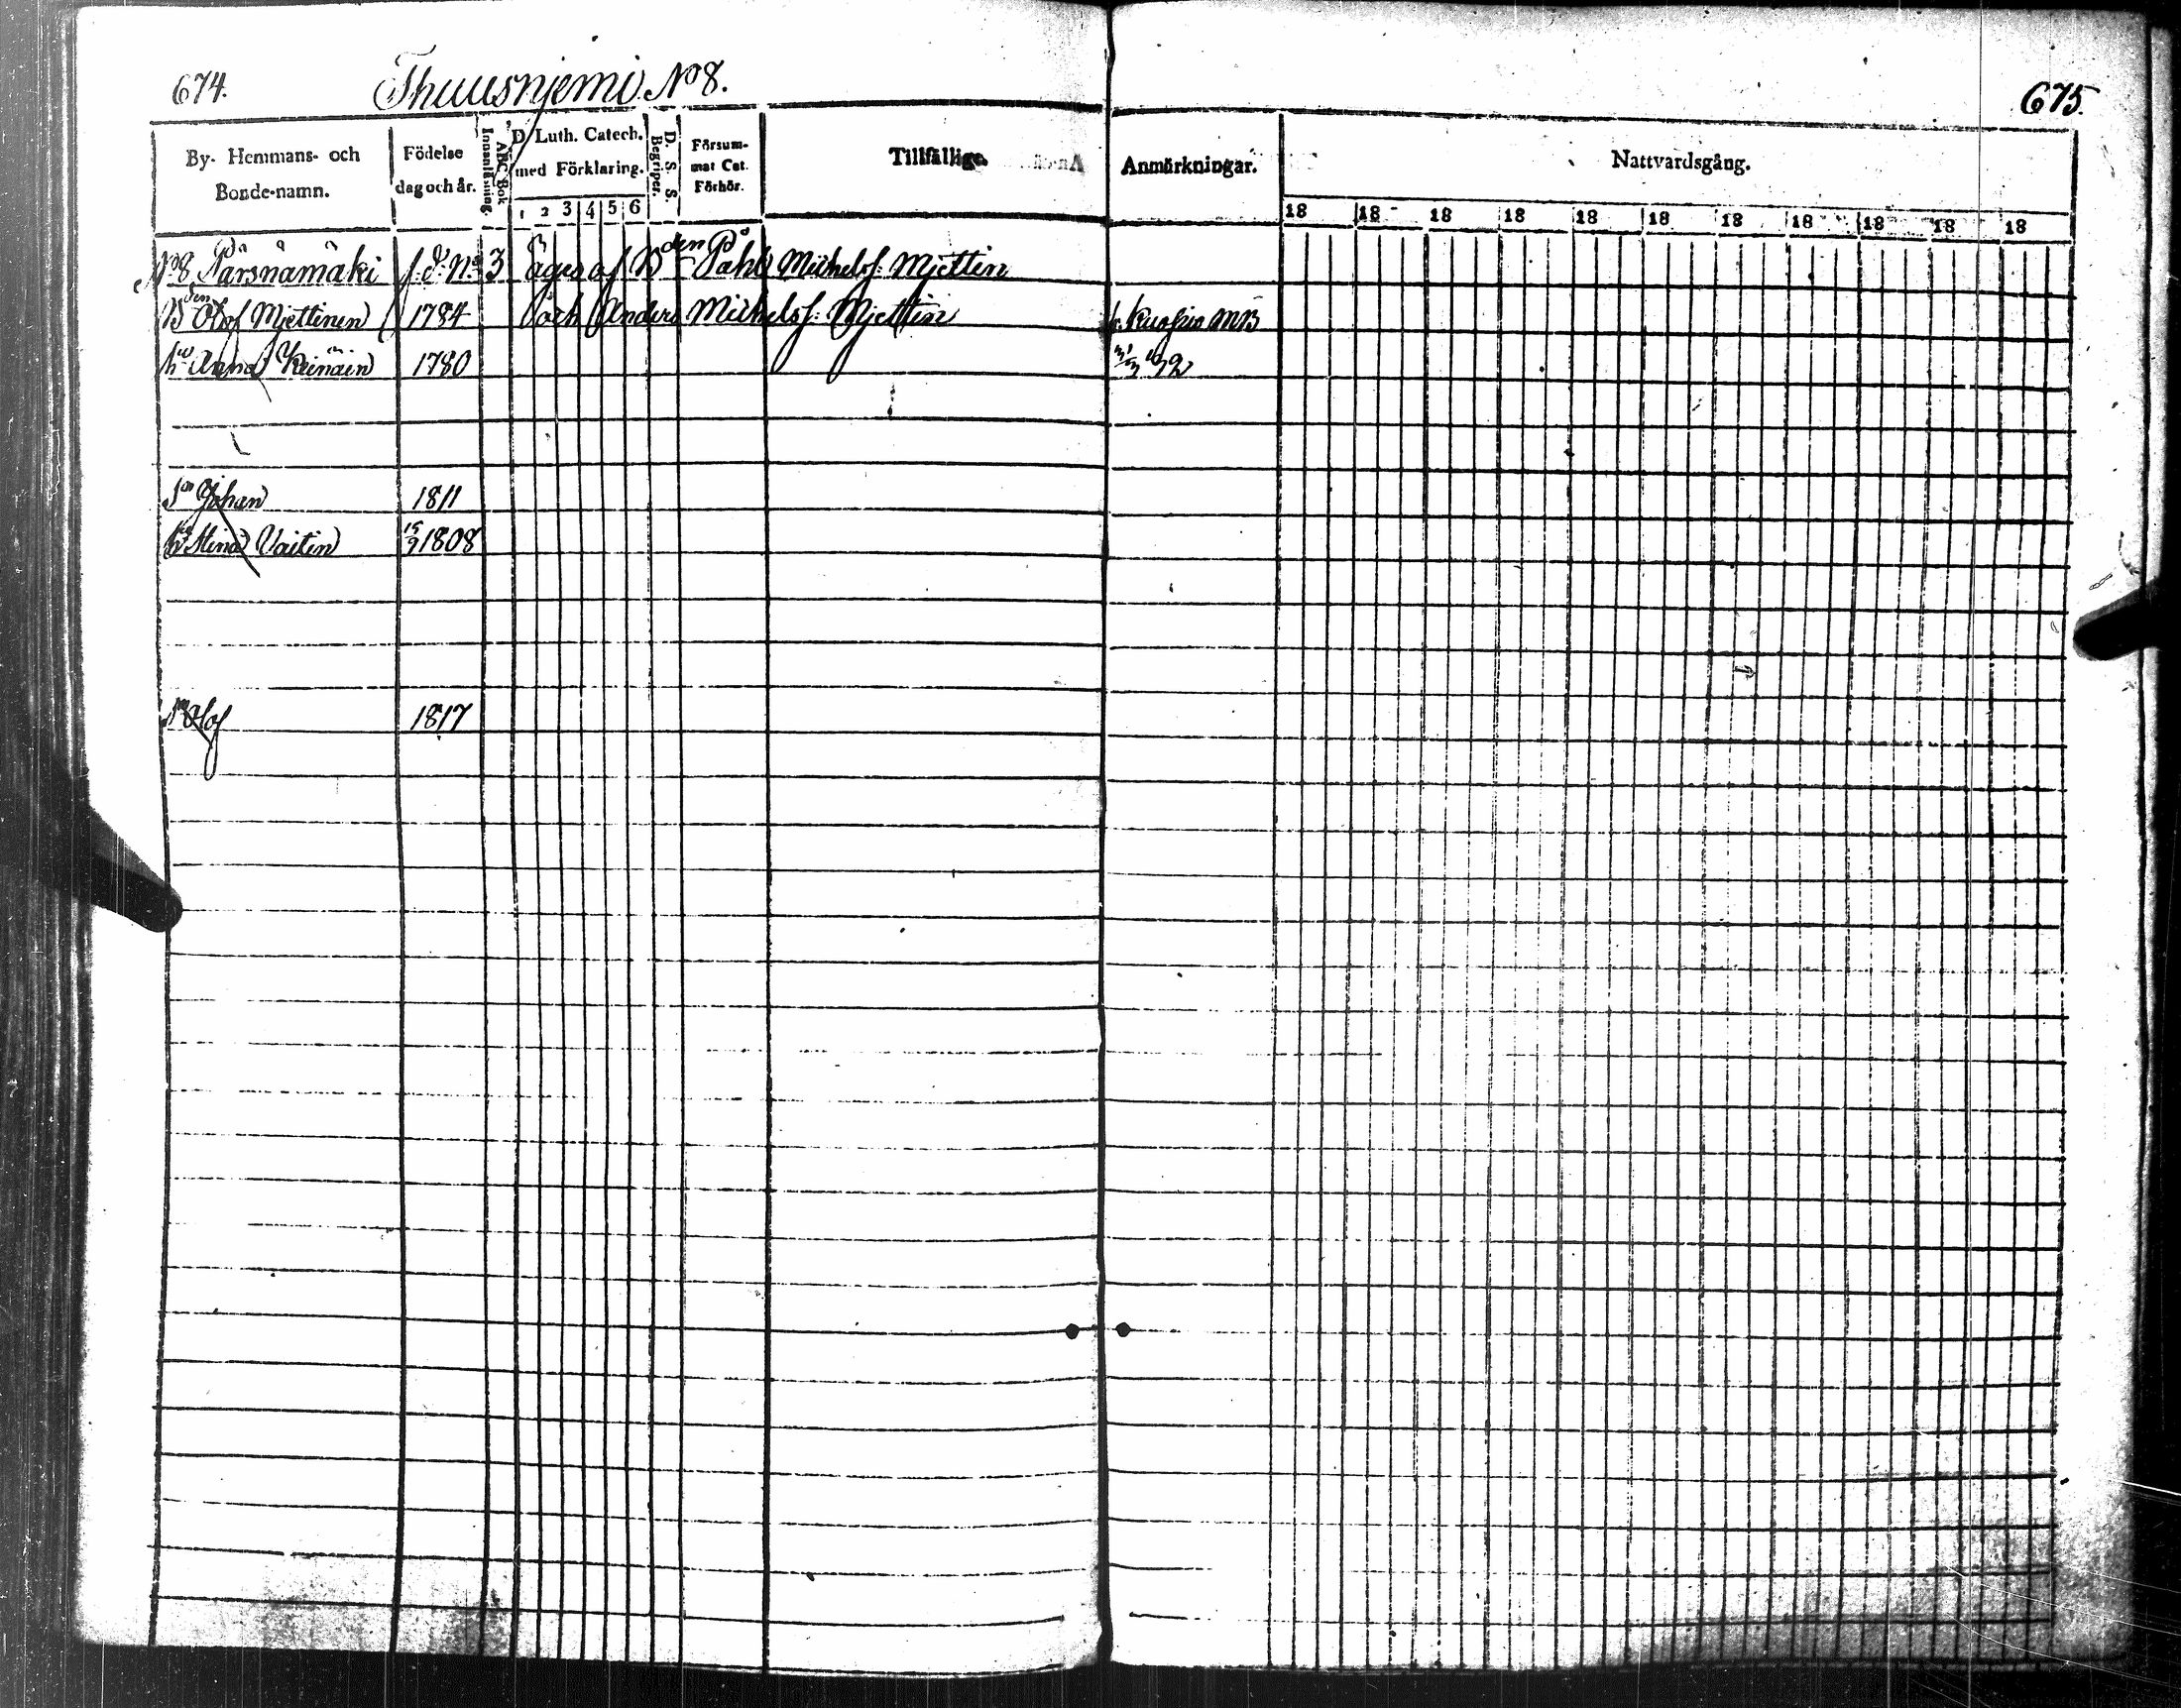 674. Thuusnjemi No 8. 675.
By- Hemmans- och Bonde-namn. Födelse dag och år. Innanläsning. ABC Bok D. Luth. Catech. med Förklaring. 1 2 3 4 5 6 D. S. S. Begriper. Försummat Cat. Förhör. Tillfällige. Anmärkningar. Nattvardsgång.
18 18 18 18 18 18 18 18 18 18 18
No 8 Pärsnämäki f. d. No 3 äges af Bden Påhl Michelss: Mjettin
Bden Olof Mjettinen 1784 och Anders Michelss: Mjettin fr. Kuopio MB
hu Anna Keinäin 1780
Sn Johan 1811
hu Stina Vaitin 15/9 1808
Sn Olof 1817